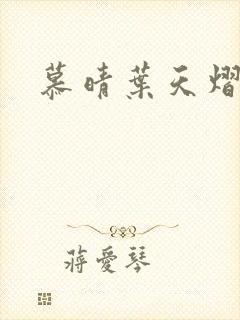 慕晴葉天熠
蔣愛琴